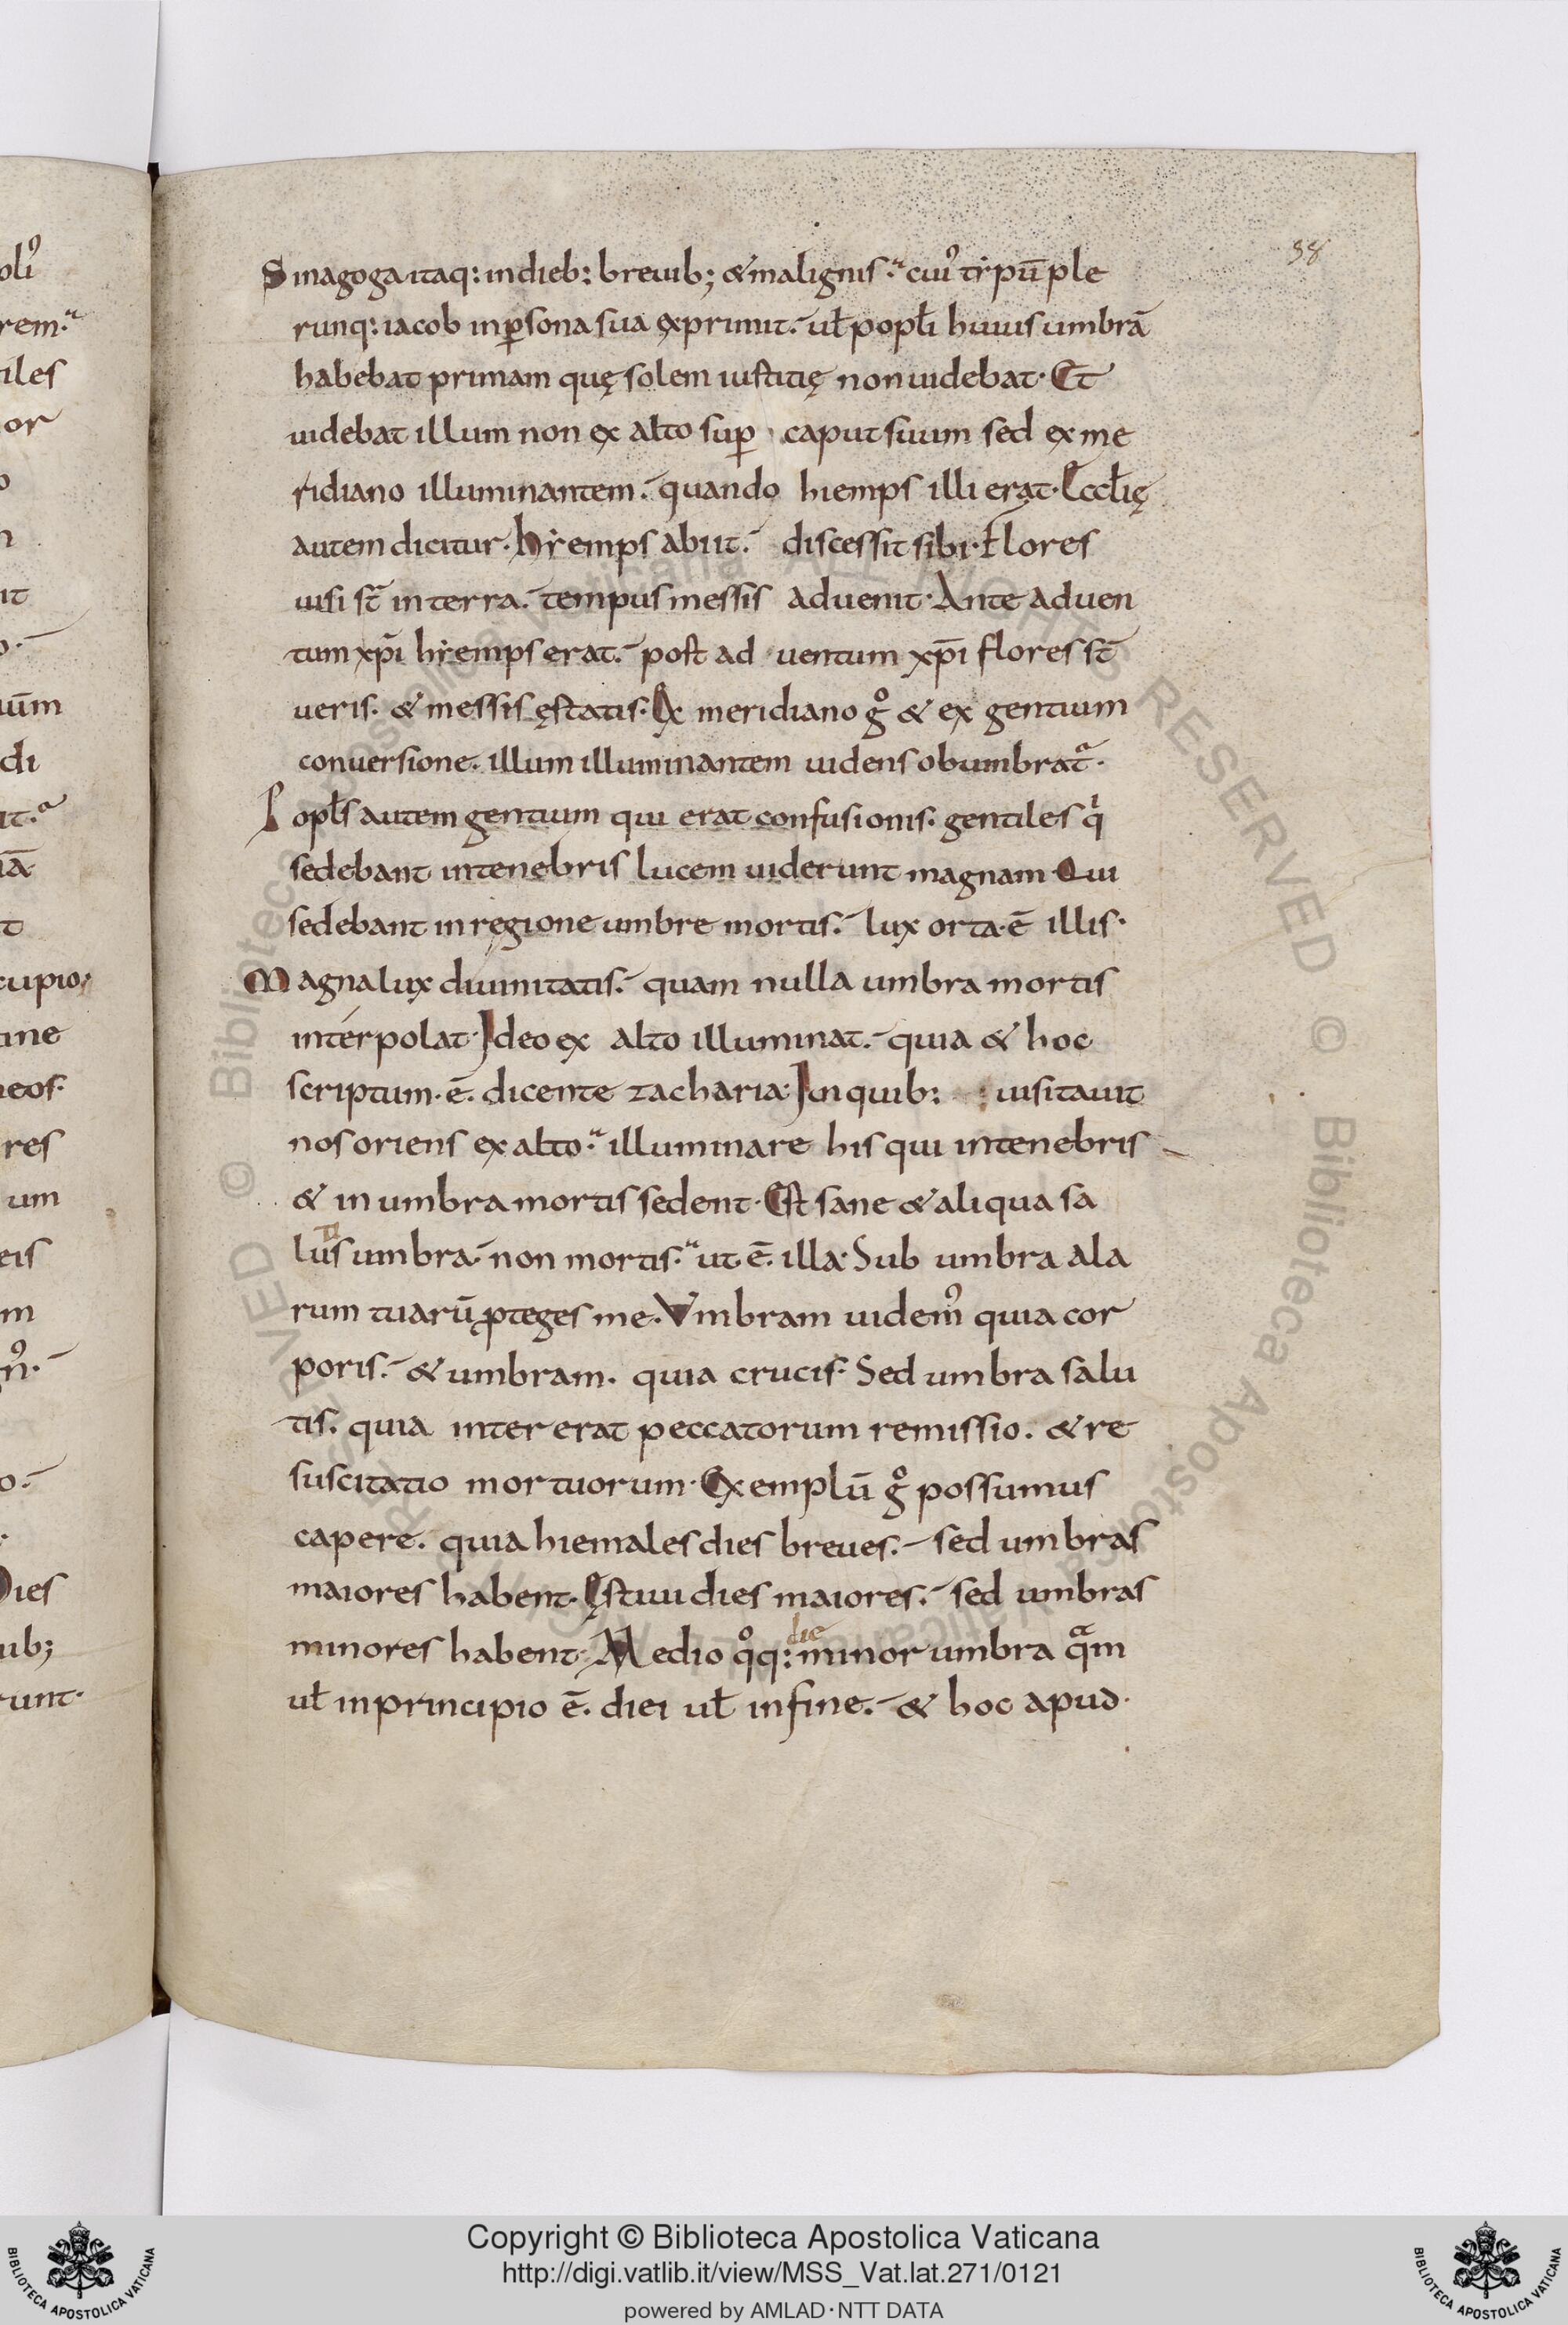 38
Sinagoga itaq: in dieb: breuib; & malignis. cui᾽ tẏpū ple
runq: iacob in p̱sona sua exprimit. ul̄ popl̄i huius umbrā
habebat primam quę solem iustitię non uidebat. Et
uidebat illum non ex alto sup̱ caput suum sed ex me
ridiano illuminantem. quando hiemps illi erat. Eccl̄ię
autem dicitur. hẏemps abiit. discessit sibi. Flores
uisi st̄ in terra. tempus messis aduenit. Ante aduen
tum xp̄i hẏemps erat. post ad uentum xp̄i flores st̄
ueris. & messis ęstatis. Ex meridiano gº & ex gentium
conuersione. illum illuminantem uidens obumbrat᾽.
Popl̄s autem gentium qui erat confusionis. gentiles qi
sedebant in tenebris lucem uiderunt magnam. Qui
sedebant in regione umbre mortis. lux orta. ē illis.
Magna lux diuinitatis. quam nulla umbra mortis
interpolat. Ideo ex alto illuminat. quia & hoc
scriptum. ē. dicente zacharia. In quib: uisitauit
nos oriens ex alto. illuminare his qui in tenebris
& in umbra mortis sedent. Est sane & aliqua sa
lus umbra. non mortis. ut. ē. illa. Sub umbra ala
rum tuarū p̱teges me. Vmbram uidem᾽ quia cor
poris. & umbram. quia crucis. Sed umbra salu
tis. quia inter erat peccatorum remissio. & re
suscitatio mortuorum. Exemplū gº possumus
capere. quia hiemales dies breues. sed umbras
maiores habent. Ęstiui dies maiores. sed umbras
die
minores habent. Medio qºq: minor umbra qᵃm
ul̄ in principio ē. diei ul̄ in fine. & hoc apud.
Copyright © Biblioteca Apostolica Vaticana
http://digi.vatlib.it/view/MSS_Vat.lat.271/0121
powered by AMLAD·NTT DATA
BIBLIOTECA APOSTOLICA VATICANA
BIBLIOTECA APOSTOLICA VATICANA